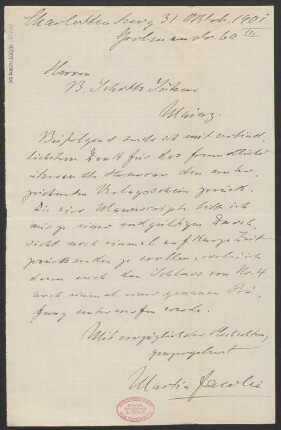 Charlottenburg 31 Oktob. 1901
60 III
Herren
B. Schott's Söhne
Mainz.
Beifolgend sende ich mit verbind-
lichstem Dank für das freundlichst
übersandte Honorar den unter-
zeichneten Verlagsschein zurück.
Die vier Manuscripte bitte ich
mir zu einer endgültigen Durch-
sicht noch einmal auf kurze Zeit
zurücksenden zu wollen,
den Schluss von No. 4
noch einmal einer genauen Prü-
fung unterwerfen werde.
Mit vorzüglicher Hochachtung
ganz ergebenst
Martin Jacobi